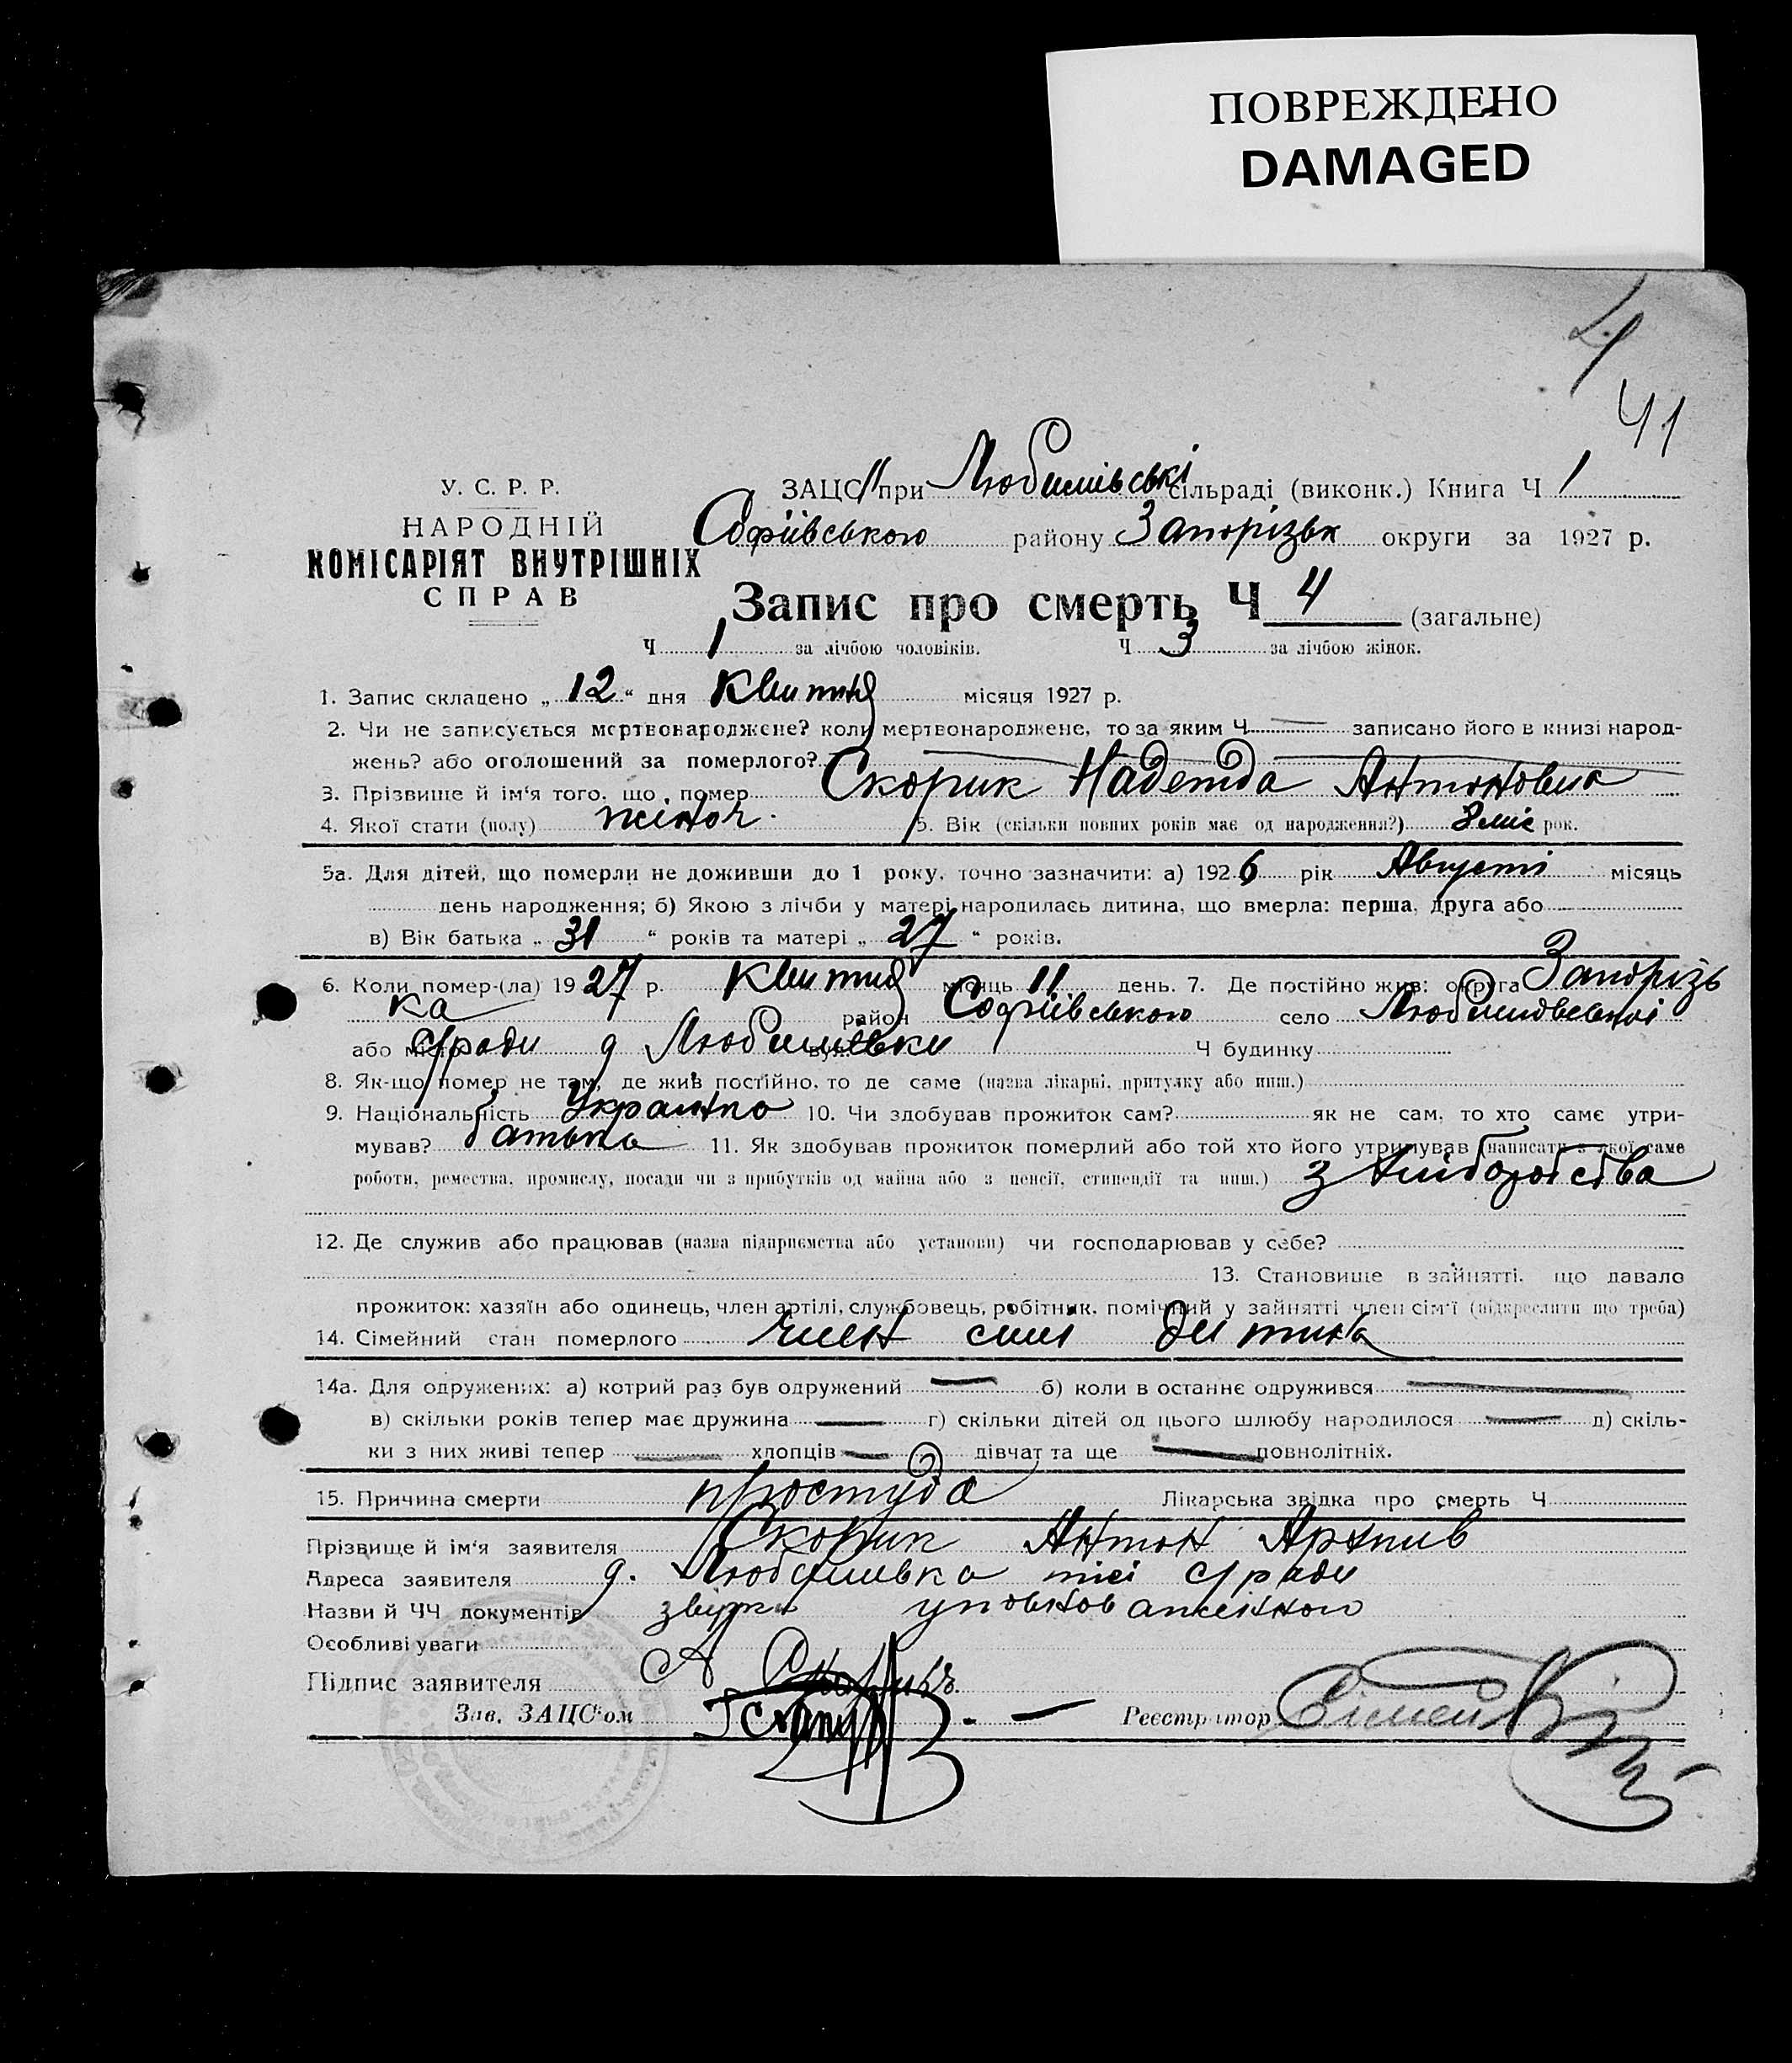 ПОВРЕЖДЕНО
DAMAGED
41
У. С. Р. Р.
НАРОДНІЙ
КОМІСАРІЯТ ВНУТРІШНІХ
СПРАВ
ЗАЦС при Любимівські сільраді (виконк.) Книга Ч 1
Софіівського району Запорізьк округи за 1927 р.
Запис про смерть Ч 4 (загальне)
Ч 1 за лічбою чоловіків. Ч 3 за лічбою жінок.
1. Запис складено „ 12 “ дня Квитня місяця 1927 р.
2. Чи не записується мертвонароджене? коли мертвонароджене, то за яким Ч — записано його в книзі народ-
жень? або оголошений за померлого?
3. Прізвище й ім‘я того, що помер Скорик Надежда Антоновна
4. Якої стати (полу) жіноч. 5. Вік (скільки повних років має од народження?) 8 міс рок.
5а. Для дітей, що померли не доживши до 1 року, точно зазначити: а) 1926 рік Августі місяць
день народження; б) Якою з лічби у матері народилась дитина, що вмерла: перша, друга або
в) Вік батька „ 31 “ років та матері „ 27 “ років.
6. Коли помер-(ла) 1927 р. Квитня місяць 11 день. 7. Де постійно жив: округа Запорізь
ка район Софіівського село
або місто с/ради д Любимівки вул. Ч будинку
8. Як-що помер не там, де жив постійно, то де саме (назва лікарні, притулку або инш.)
9. Національність 10. Чи здобував прожиток сам? як не сам, то хто саме утри-
мував? батько 11. Як здобував прожиток померлий або той хто його утримував (написати з якої саме
роботи, ремества, промислу, посади чи з прибутків од майна або з пенсії, стипендії та инш.) з хліборобства
12. Де служив або працював (назва підприємства або установи) чи господарював у себе?
13. Становище в зайнятті, що давало
прожиток: хазяїн або одинець, член артілі, службовець, робітник, помічний у зайнятті член сім‘ї (підкреслити що треба)
14. Сімейний стан померлого член симі дитина
14а. Для одружених: а) котрий раз був одружений — б) коли в останнє одружився —
в) скільки років тепер має дружина — г) скільки дітей од цього шлюбу народилося — д) скіль-
ки з них живі тепер — хлопців — дівчат та ще — повнолітніх.
15. Причина смерти простуда Лікарська звідка про смерть Ч
Прізвище й ім‘я заявителя Скорик Антон Архипів
Адреса заявителя д. Любимівка тієі с/ради
Назви й ЧЧ документів уповноваженного
Особливі уваги
Підпис заявителя А Скорикъ.
Зав. ЗАЦС‘ом
Реєстратор